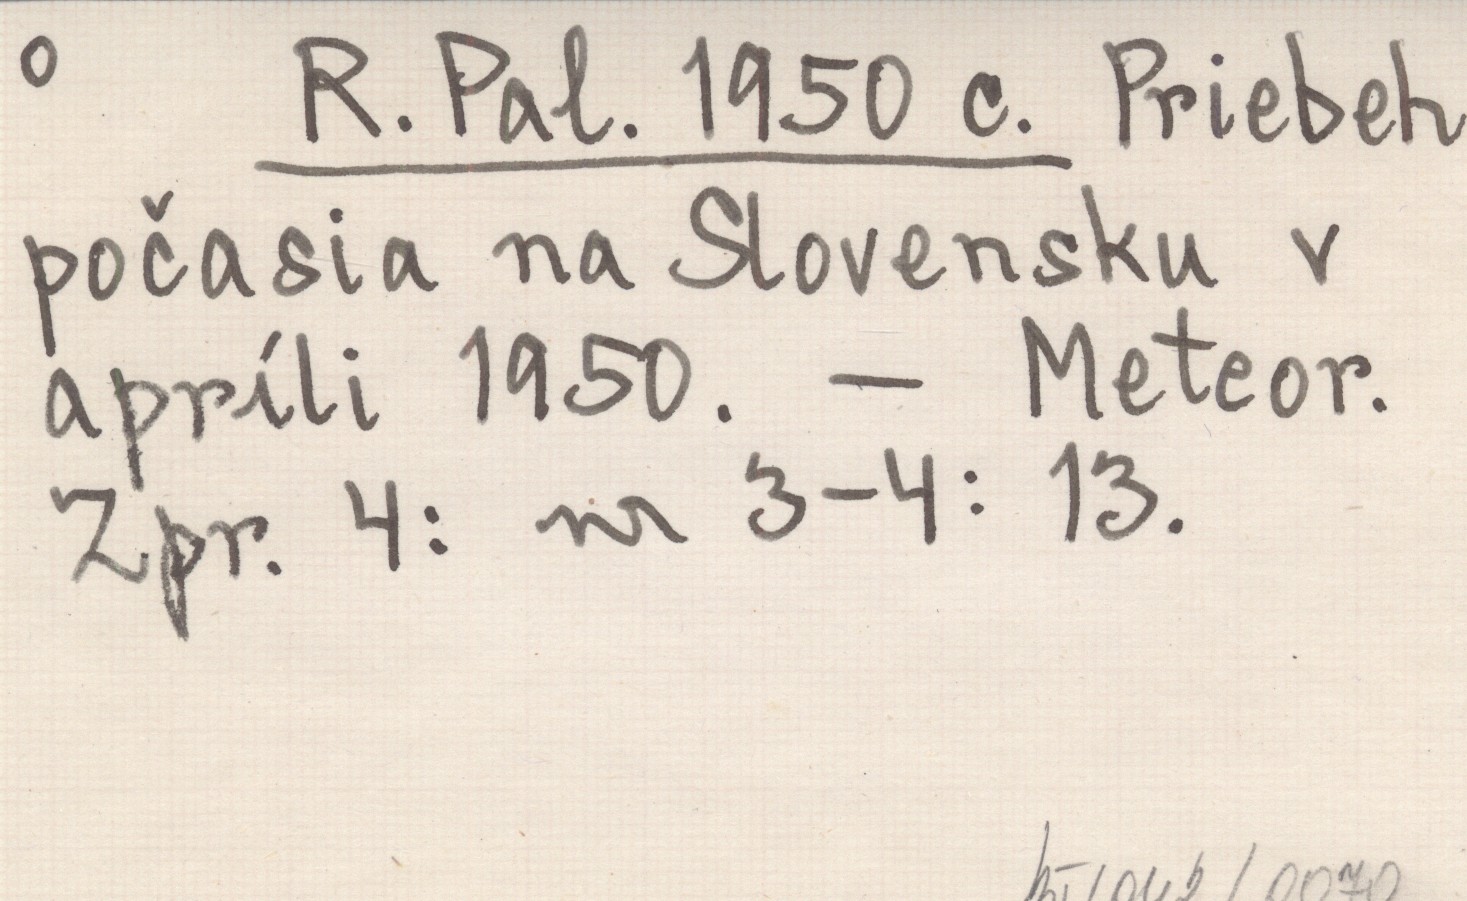 o R. Pal. 1950 c. Priebeh
počasia na Slovensku v
apríli 1950. — Meteor.
Zpr. 4: nr 3-4: 13.